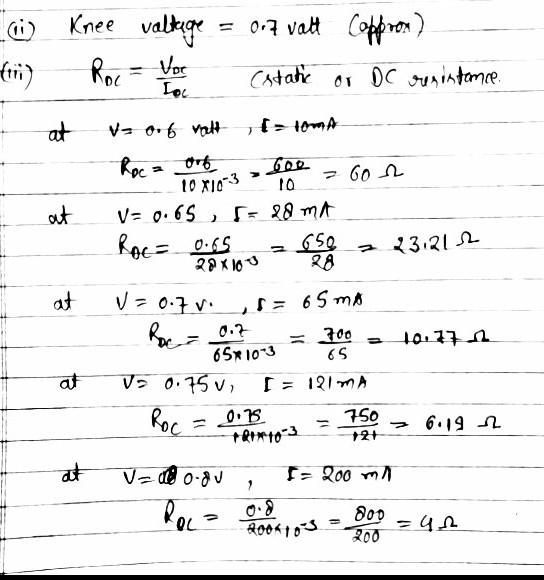 (ii) Knee valtage = 0.7 valt (approx)
(iii) R_DC = V_DC / I_DC (static or DC resistance.
at V = 0.6 valt , I = 10mA
R_DC = 0.6 / 10 X10^-3 = 600 / 10 = 60 Ω
at V = 0.65 , I = 28 mA
R_DC = 0.65 / 28 x 10^-3 = 650 / 28 = 23.21 Ω
at V = 0.7 v. , I = 65 mA
R_DC = 0.7 / 65x10^-3 = 700 / 65 = 10.77 Ω
at V = 0.75 v, I = 121 mA
R_DC = 0.75 / 121x10^-3 = 750 / 121 = 6.19 Ω
at V = 0.8 v , I = 200 mA
R_DC = 0.8 / 200x10^-3 = 800 / 200 = 4 Ω